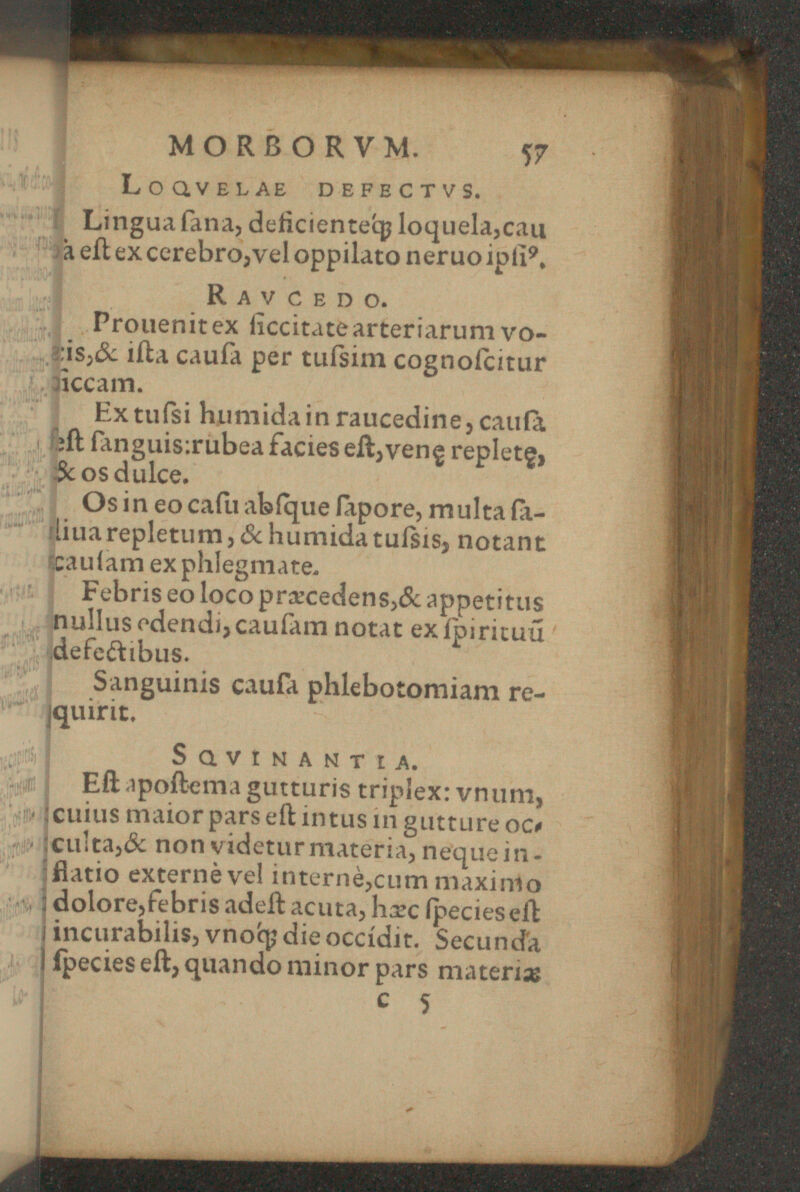 MORBORVM. 57
LOQVELAE DEFECTVS.
Lingua ſana, deficienteq́; loquela, cau
ſa eſt ex cerebro, vel oppilato neruo ipſiꝰ.
RAVCEDO.
Prouenit ex ſiccitate arteriarum vo-
cis, & iſta cauſa per tuſsim cognoſcitur
ſiccam.
Ex tuſsi humida in raucedine, cauſa
eſt ſanguis: rubea facies eſt, venę repletę,
& os dulce.
Os in eo caſu abſque ſapore, multa ſa-
liua repletum, & humida tuſsis, notant
cauſam ex phlegmate.
Febris eo loco præcedens, & appetitus
nullus edendi, cauſam notat ex ſpirituũ
defectibus.
Sanguinis cauſa phlebotomiam re-
quirit.
SQVINANTIA.
Eſt apoſtema gutturis triplex: vnum,
cuius maior pars eſt intus in gutture oc-
culta, & non videtur materia, neque in-
flatio externè vel internè, cum maximo
dolore, febris adeſt acuta, hæc ſpecies eſt
incurabilis, vnoq́; die occídit. Secunda
ſpecies eſt, quando minor pars materiæ
C 5